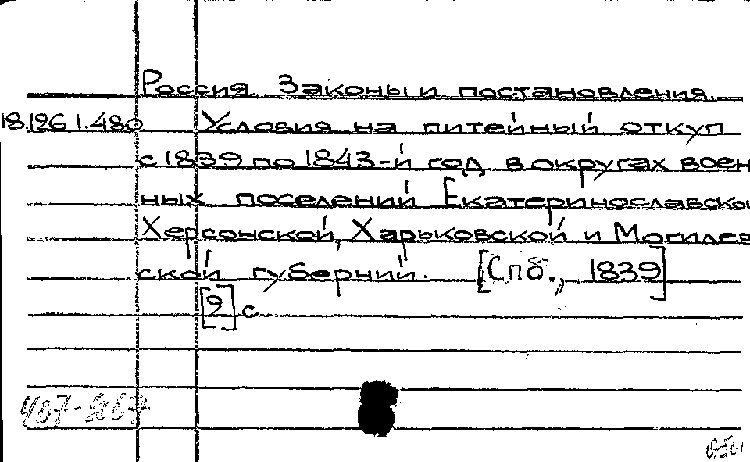 Россия. Законы и постановления.
18.196.1.480 Условия на питейный откуп
с 1839 по 1843-й год в округах воен
ных поселений Екатеринославско
Херсонской, Харьковской и Могилев
ской губерний. [Спб., 1839]
[9] с